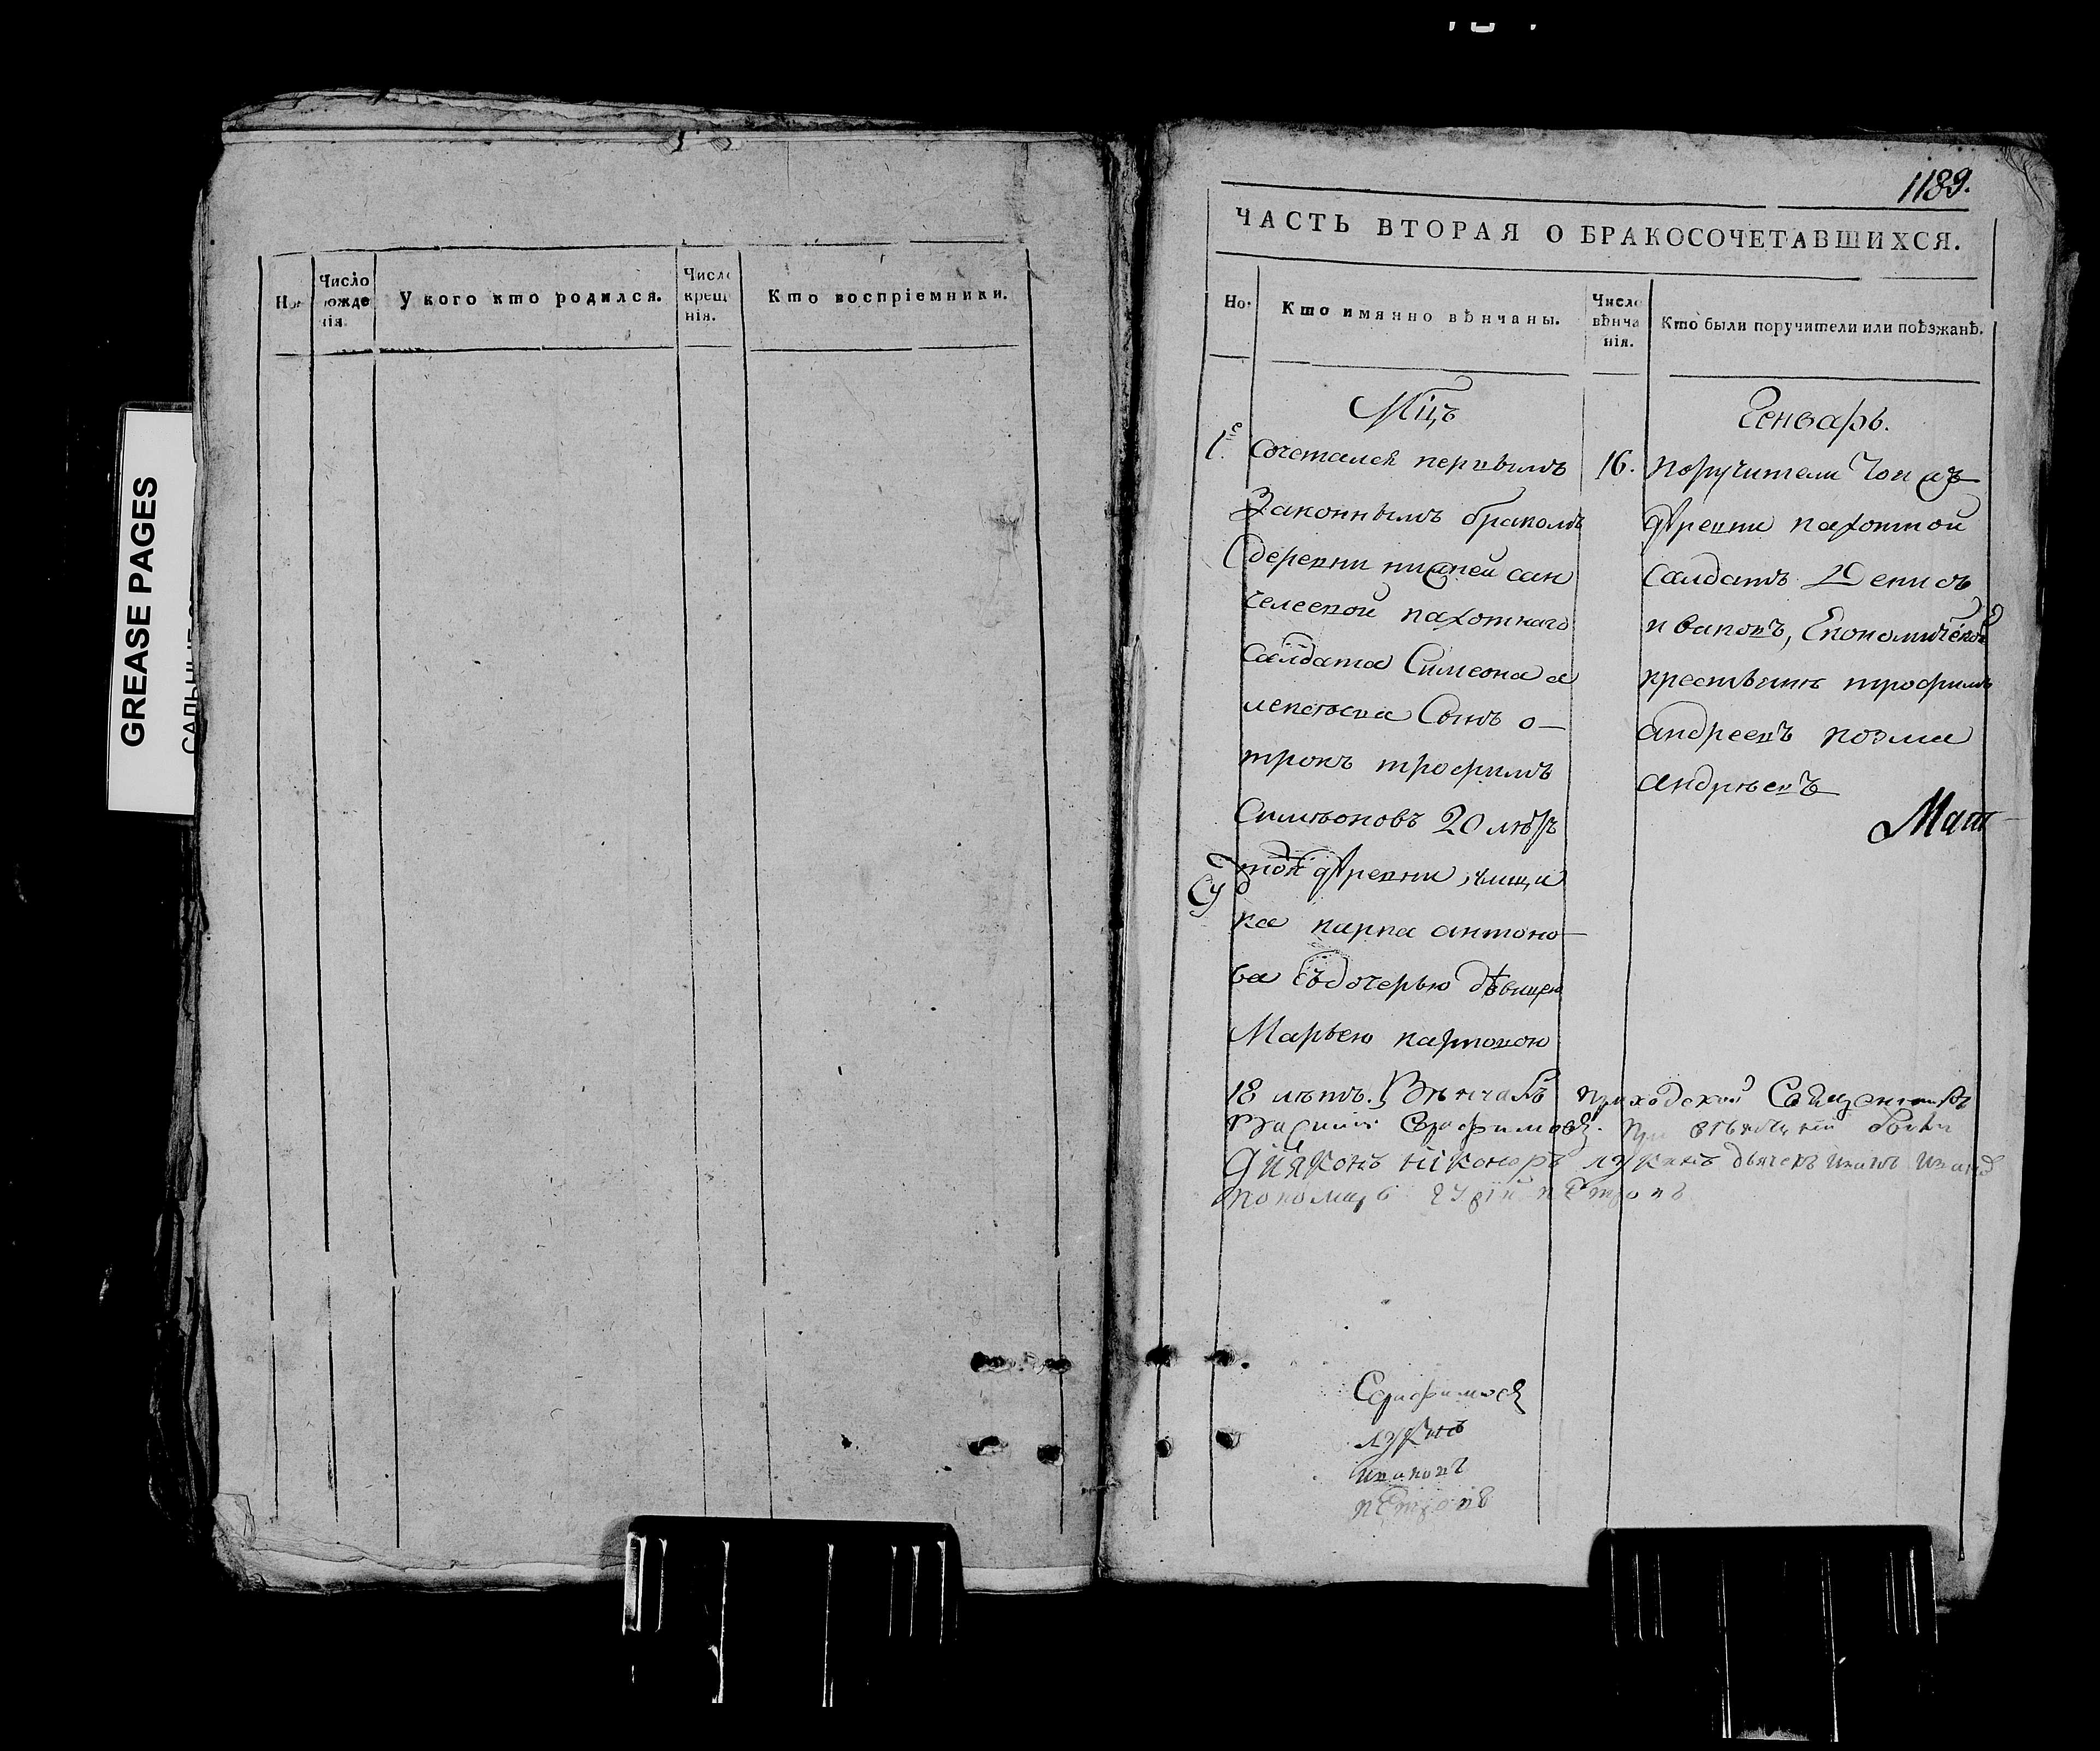 GREASE PAGES
Но.
Число рожде нія.
У кого кто родился.
Число крещ нія.
Кто воспріемники.
1189.
ЧАСТЬ ВТОРАЯ О БРАКОСОЧЕТАВШИХСЯ.
Но.
Кто имянно вѣнчаны.
Число вѣнча нія.
Кто были поручители или поѣзжанѣ.
Мцъ
Генварь.
1е
сочетался первымъ
законнымъ бракомъ
деревни нижней сан
челеевой пахотнаго
салдата Симеона а
лексѣева Сынъ о–
трокъ трофимъ
Симѣоновъ 20 лѣтъ
той деревни ямщи
ка карпа антоно–
ва съ дочерью дѣвицею
Марьею карповою
18 лѣтъ.
16.
поручители
деревни пахотной
салдатъ Денисъ
ивановъ, Економической
крестьянинъ трофимъ
андреевъ козма
андрѣевъ
Вѣнчалъ приходской Священникъ
Василій Серафимовъ. при вѣнчаніи были
Діяконъ Никоноръ лукинъ дьячекъ иванъ ивановъ
пономарь гурій петровъ
Серафимовъ
лукинъ
ивановъ
петровъ